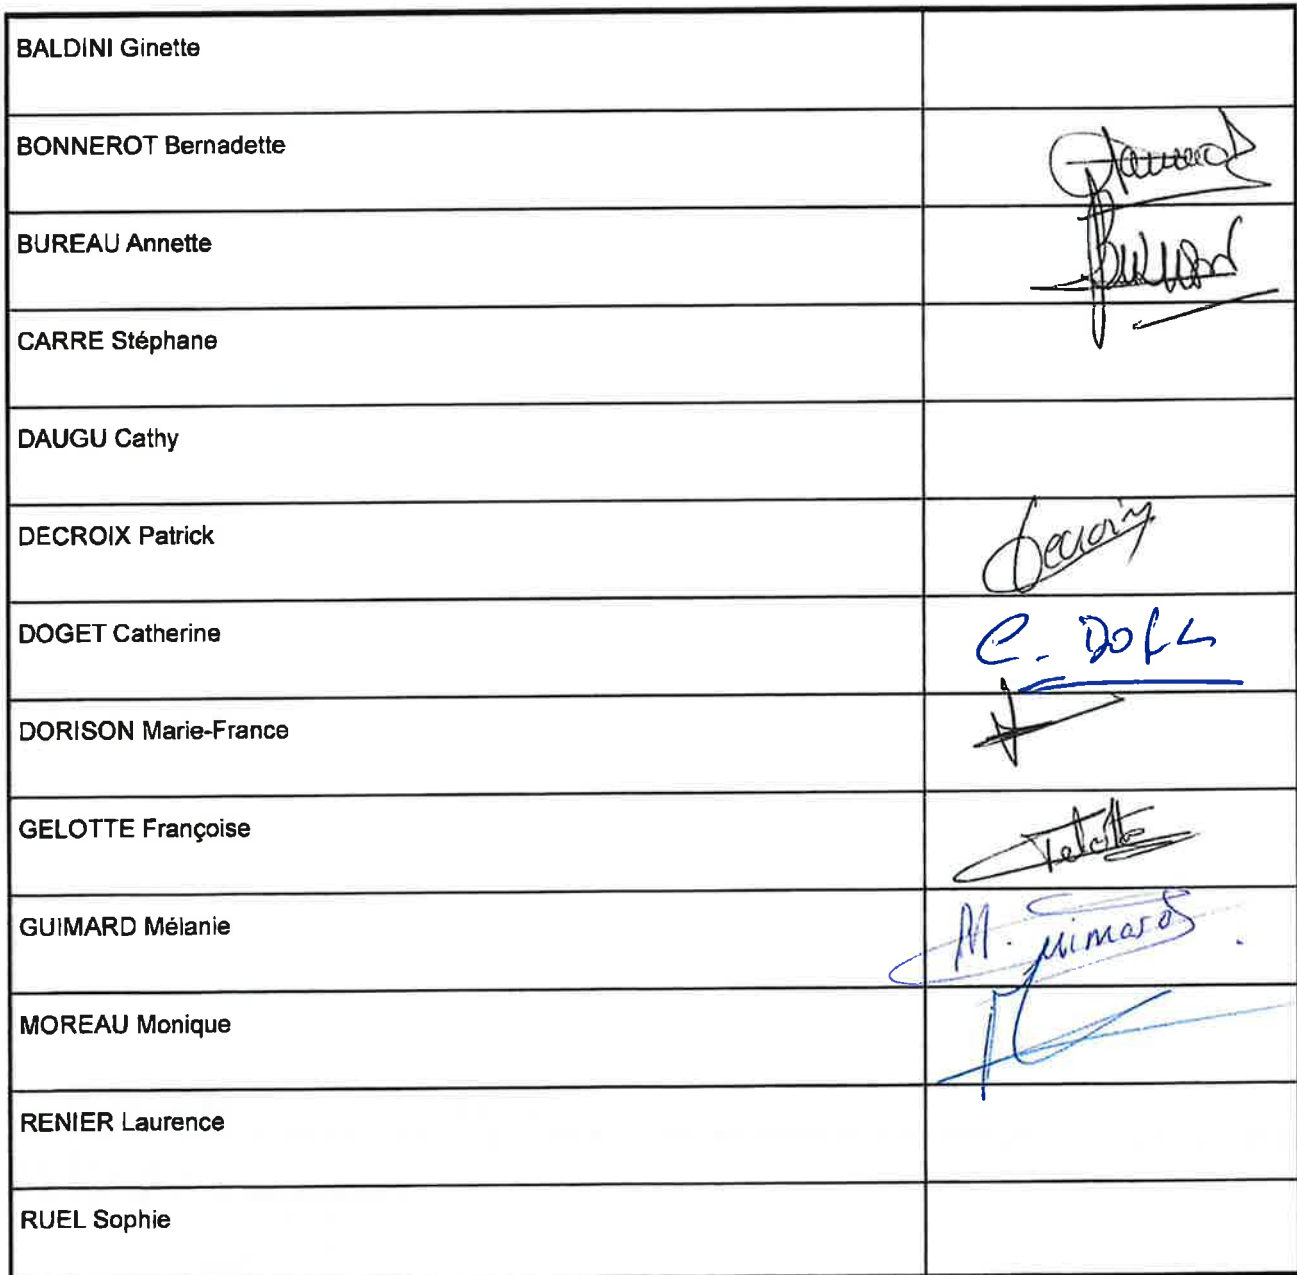 BALDINI Ginette
BONNEROT Bernadette
BUREAU Annette
CARRE Stéphane
DAUGU Cathy
DECROIX Patrick
DOGET Catherine
C. DOGET
DORISON Marie-France
GELOTTE Françoise
Gelotte
GUIMARD Mélanie
M. Guimard
MOREAU Monique
RENIER Laurence
RUEL Sophie